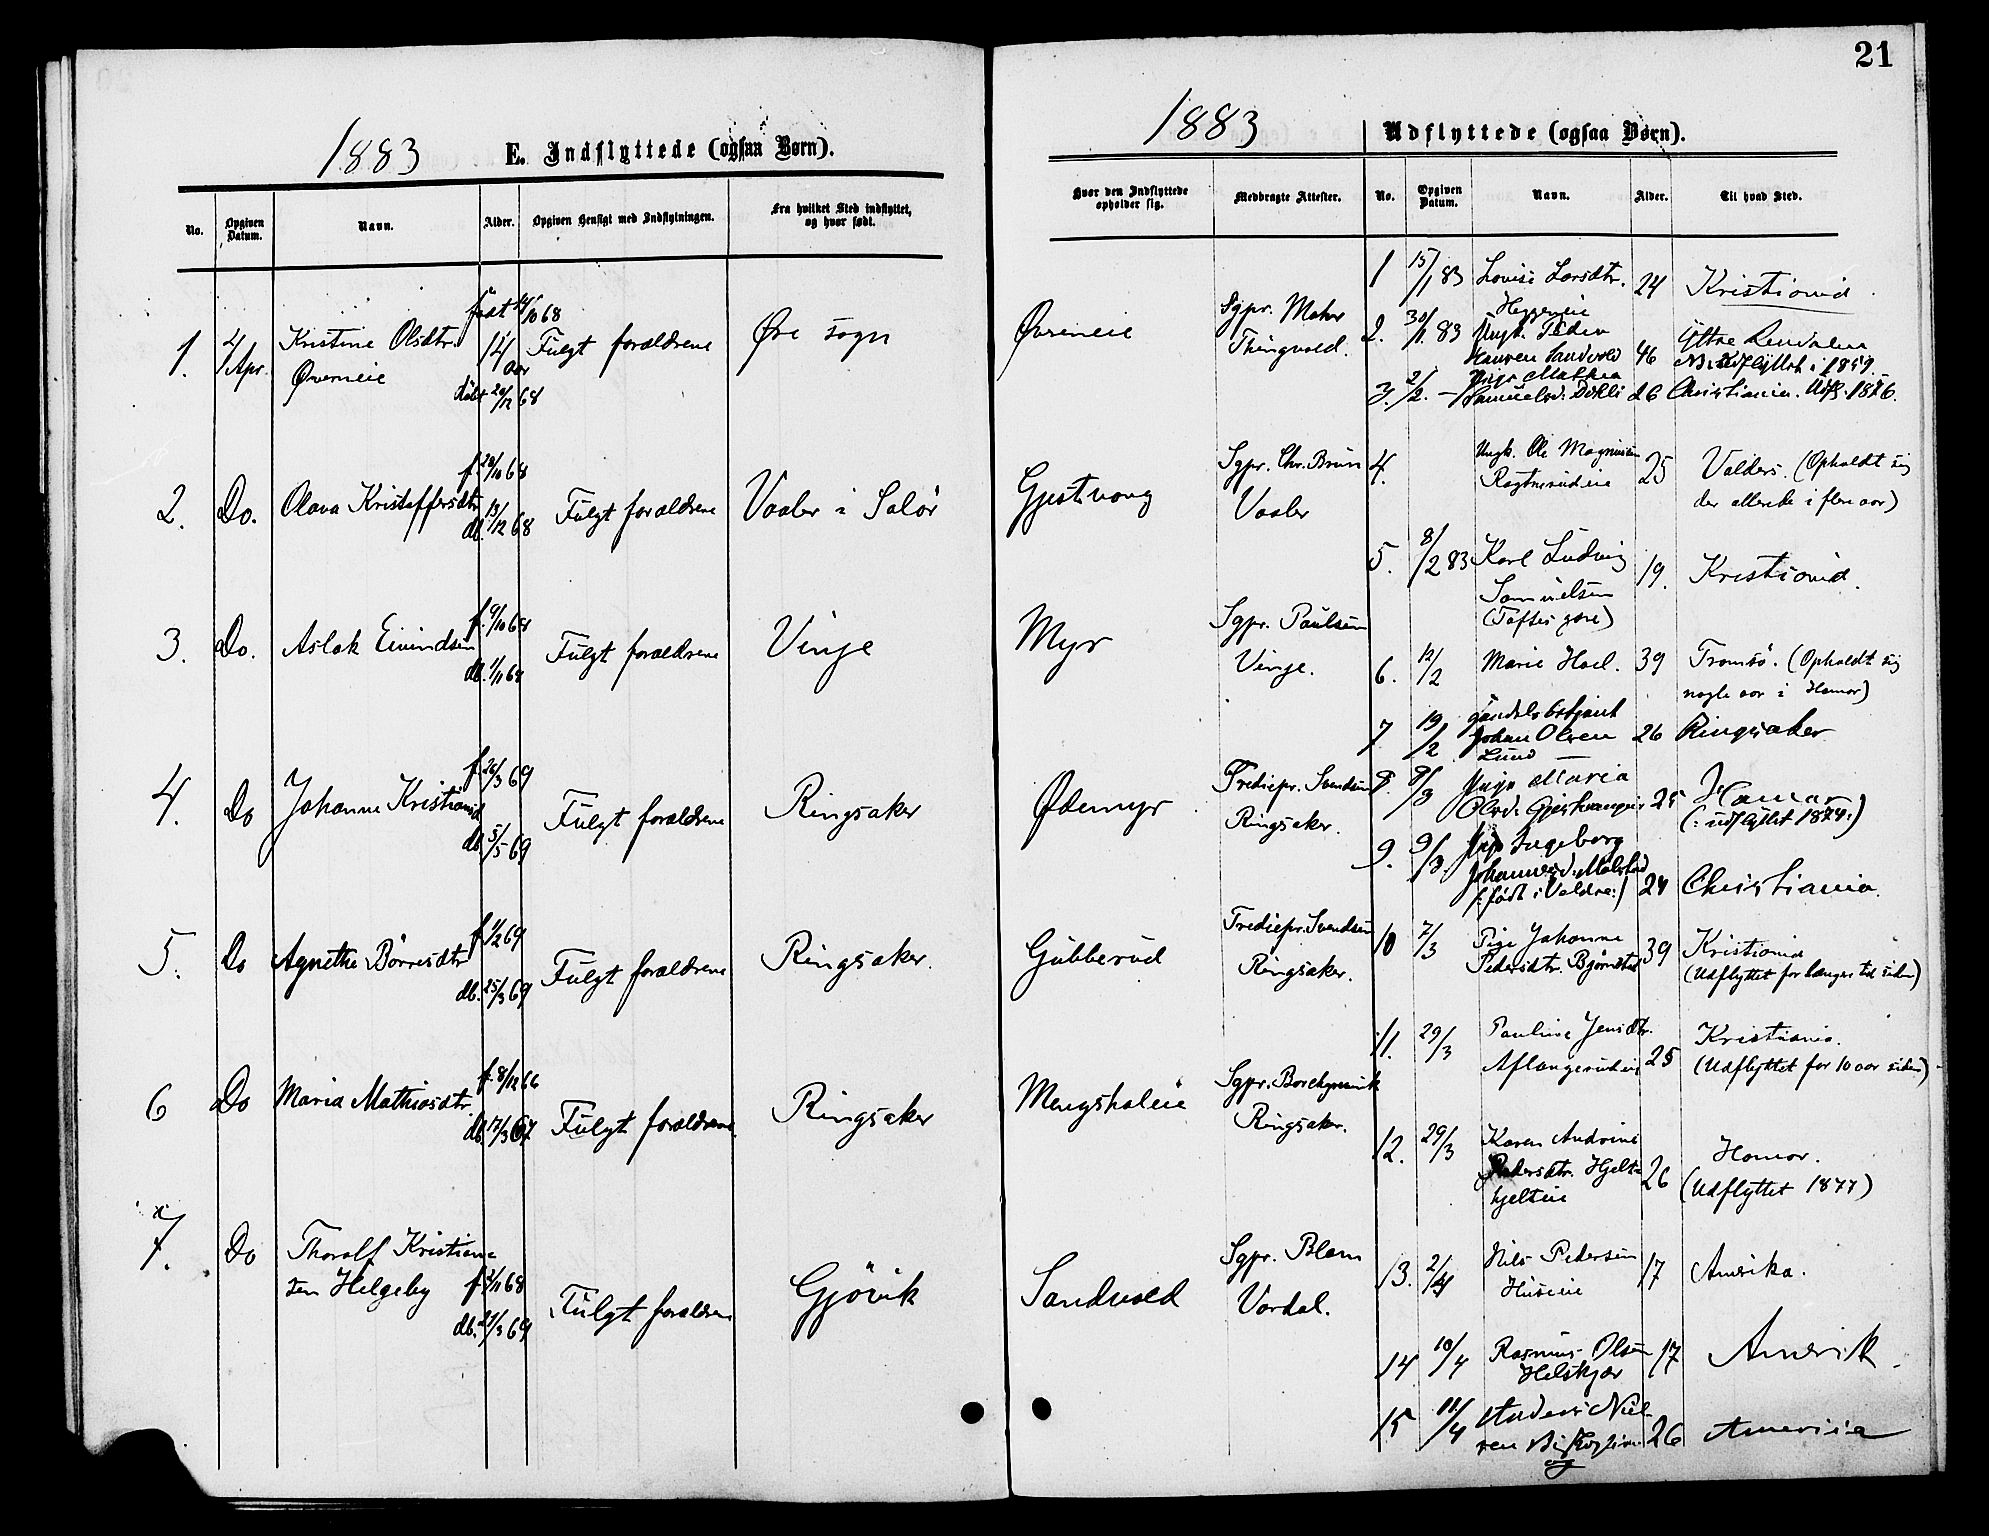 21
1883 E. Indflyttede (ogsaa Børn).
No.
Opgiven Datum.
Navn.
Alder.
Opgiven Hensigt med Indflytningen.
Fra hvilket Sted indflyttet, og hvor født.
1. 4/Apr. Kristine Olsdtr. født 14/10 68 14 Fulgt forældrene Øre sogn
Øverneie
aar
døbt 20/12 68
2. Do. Olava Kristoffersdtr f. 28/10 68 Fulgt forældrene Vaaler i Solør
db. 13/12 68
3. Do. Aslak Eivindsen f. 9/10 68 Fulgt forældrene Vinje
db. 1/11 68
4. Do Johanne f. 26/3 69 Fulgt forældrene Ringsaker
db. 5/5 69
5. Do Agnethe Börresdtr f. 1/2 69 Fulgt forældrene Ringsaker.
db. 25/3 69
6 Do Maria Mathiasdtr. f. 8/12 66 Fulgt forældrene. Ringsaker
db. 17/3 67
7. Do Thoralf Kristian-
sen Helgeby f. 68 Fulgt forældrene Gjövik
db. 69
1883 Udflyttede (ogsaa Børn).
Hvor den Indflyttede opholder sig.
Medbragte Attester.
No.
Opgiven Datum.
Navn.
Alder.
Til hvad Sted.
Øverneie
Sgpr.
Thingvold.
Gjestvang
Sgpr. Chr. Bruun
Vaaler
Myr
Sgpr. Paulsen
Vinje.
Ödemyr
Trediepr. Svendsen
Ringsaker.
Gubberud
Trediepr. Svendsen
Ringsaker.
Mengshaleie
Sgpr. Borchgrevink
Ringsaker.
Sandvold
Sgpr. Blom
Vardal.
1 15/1 83 Lovise Larsdtr. 24 Kristiania.
2. 30/1 83 Ungk. Peder
Hansen Sandvold 46 Ytre Rendalen
NB. Udflyttet i 1859.
3. 2/2. Pige Mathea
Samuelsd. Dehli 26 Christiania. Udfl. 1876.
4. Ungk. Ole Magnusen
25 Valders. (Opholdt sig
der allerede i flere aar)
5. 8/2 83 Karl Ludvig
Samuelsen 19. Kristiania.
6. 12/2 Marie Hoel. 39 Tromsö. (Opholdt sig
nogle aar i Hamar)
7 19/2 Handelsbetjent
Johan Olsen 26 Ringsaker
Lund
8. 9/3 Pige Maria
Olsd. Gjestvangeie 25 Hamar
(: udflyttet 1874:)
9. 9/3. Pige Ingeborg
Johannesd. Mælstad
(: født i Valdre:) 24 Christiania.
10 7/3 Pige Johanne
Pedersdtr. Björnstad 39 Kristiania
(Udflyttet for længere tid siden)
11. 29/3 Pauline Jensdtr. Kristiania.
25 (Udflyttet for 10 aar siden)
12. 29/3 Karen Andrine
Pedersdtr. Hjelt- Hamar.
hjelteie 26 (Udflyttet 1877)
13. 2/4 Nils Pedersen
Huseie 17 Amerika.
14 10/4 Rasmus Olsen
Helskjær 17 Amerik.
15 11/4 Anders Niel-
sen 26 Amerika